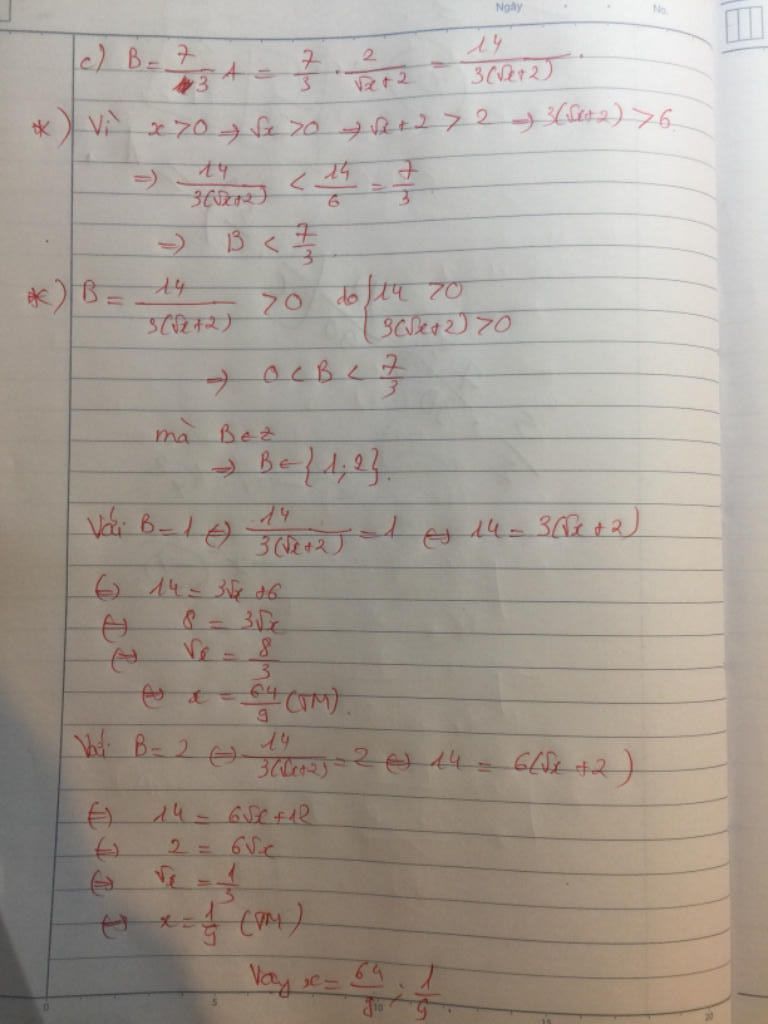 Ngày No.
c) B = 7/3 A = 7/3 · 2/(√x+2) = 14/(3(√x+2)).
*) Vì x > 0 ⇒ √x > 0 ⇒ √x + 2 > 2 ⇒ 3(√x+2) > 6.
⇒ 14/(3(√x+2)) < 14/6 = 7/3
⇒ B < 7/3.
*) B = 14/(3(√x+2)) > 0 do { 14 > 0
3(√x+2) > 0
⇒ 0 < B < 7/3
mà B ∈ Z
⇒ B ∈ {1; 2}.
Với B = 1 ⇔ 14/(3(√x+2)) = 1 ⇔ 14 = 3(√x+2)
⇔ 14 = 3√x + 6
⇔ 8 = 3√x
⇔ √x = 8/3
⇔ x = 64/9 (TM).
Với B = 2 ⇔ 14/(3(√x+2)) = 2 ⇔ 14 = 6(√x+2)
⇔ 14 = 6√x + 12
⇔ 2 = 6√x
⇔ √x = 1/3
⇔ x = 1/9 (TM)
Vậy x = 64/9 ; 1/9.
0 5 10 15 20